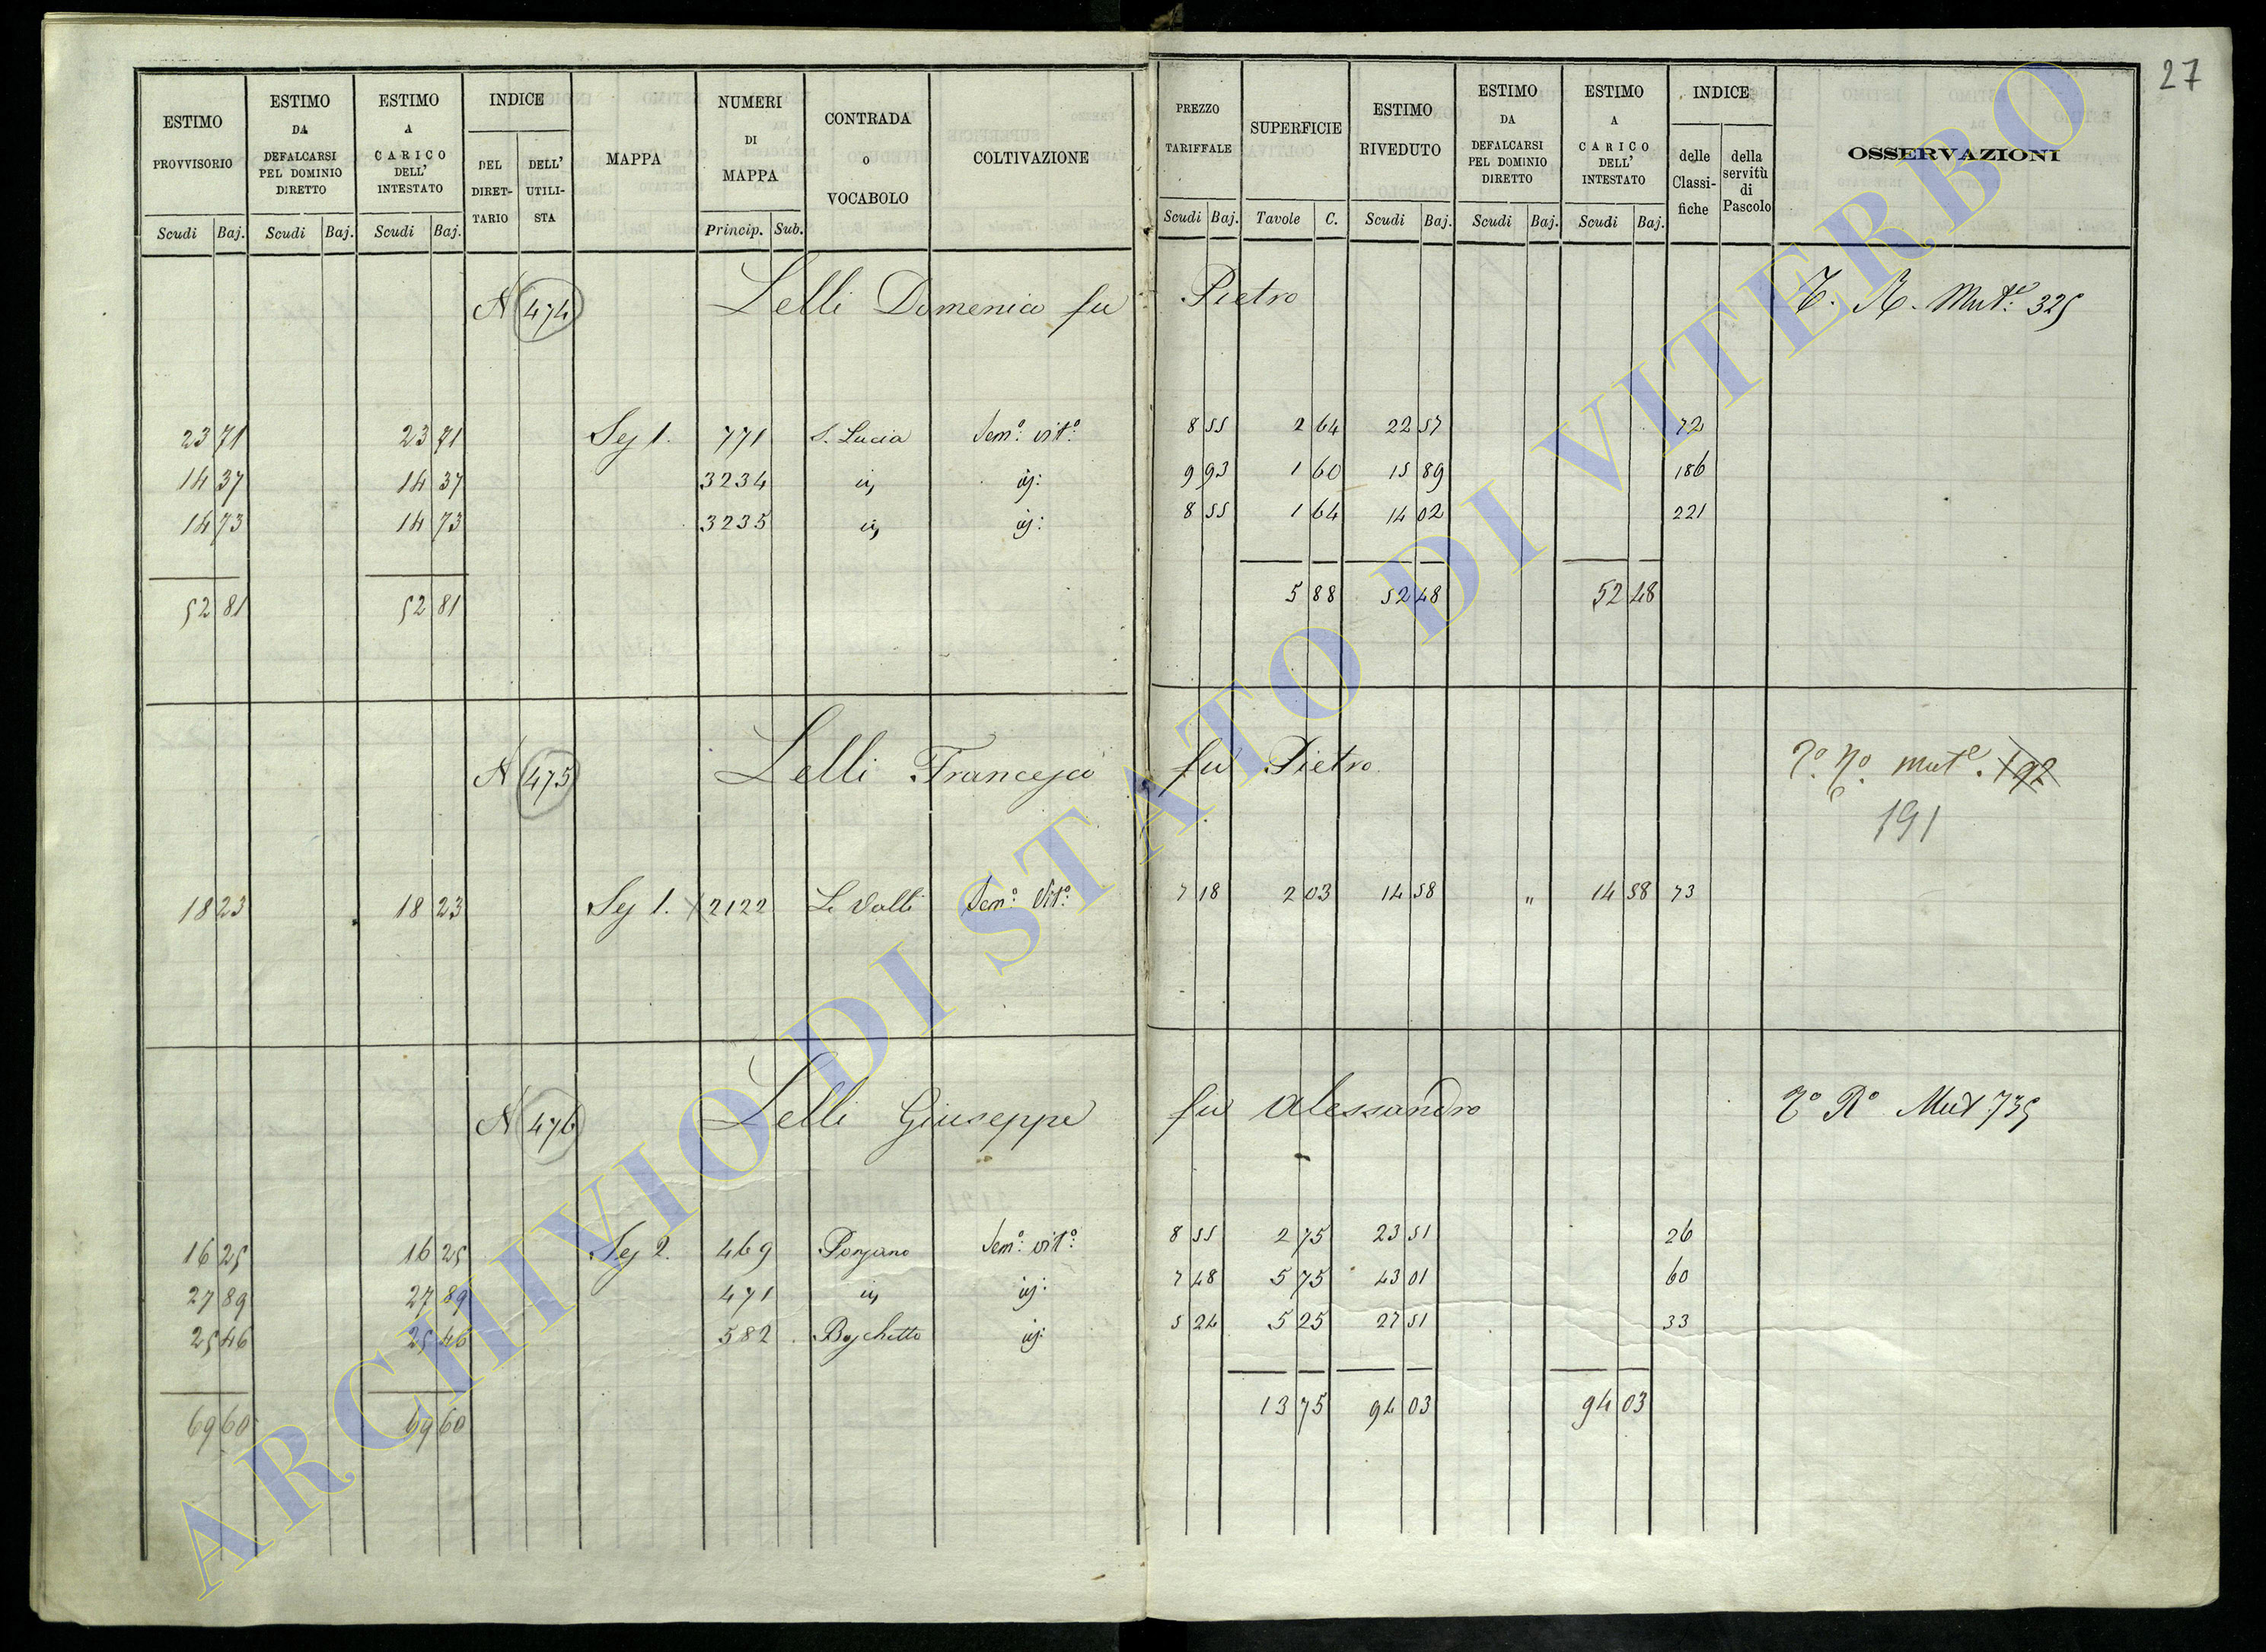 27
ESTIMO PROVVISORIO
ESTIMO DA DEFALCARSI PEL DOMINIO DIRETTO
ESTIMO A CARICO DELL' INTESTATO
INDICE
DEL DIRET-TARIO
DELL' UTILI-STA
MAPPA
NUMERI DI MAPPA
CONTRADA O VOCABOLO
COLTIVAZIONE
PREZZO TARIFFALE
SUPERFICIE
ESTIMO RIVEDUTO
ESTIMO DA DEFALCARSI PEL DOMINIO DIRETTO
ESTIMO A CARICO DELL' INTESTATO
INDICE
delle Classi-fiche
della servitù di Pascolo
OSSERVAZIONI
Scudi Baj. Scudi Baj. Scudi Baj. Princip. Sub. Scudi Baj. Tavole C. Scudi Baj. Scudi Baj. Scudi Baj.
N 474 Lelli Domenico fu Pietro T. R. Mut.e 325
23 71 23 71 Sez 1. 771 S. Lucia Sem.o vit.o 8 55 2 64 22 57 72
14 37 14 37 3234 9 93 1 60 15 89 186
14 73 14 73 3235 8 55 1 64 14 02 221
52 81 52 81 5 88 52 48 52 48
N 475 Lelli Francesco fu Pietro mut.e 192
191
18 23 18 23 Sez 1. 2122 Le Valli Sem.o Vit.o 7 18 2 03 14 58 " 14 58 73
N 476 Lelli Giuseppe fu Alessandro To Ro Mut 735
16 25 16 25 Sez 2. 469 Ponzano Sem.o vit.o 8 55 2 75 23 51 26
27 89 27 89 471 7 48 5 75 43 01 60
25 46 25 46 582 Boschetto 5 24 5 25 27 51 33
69 60 69 60 13 75 94 03 94 03
ARCHIVIO DI STATO DI VITERBO